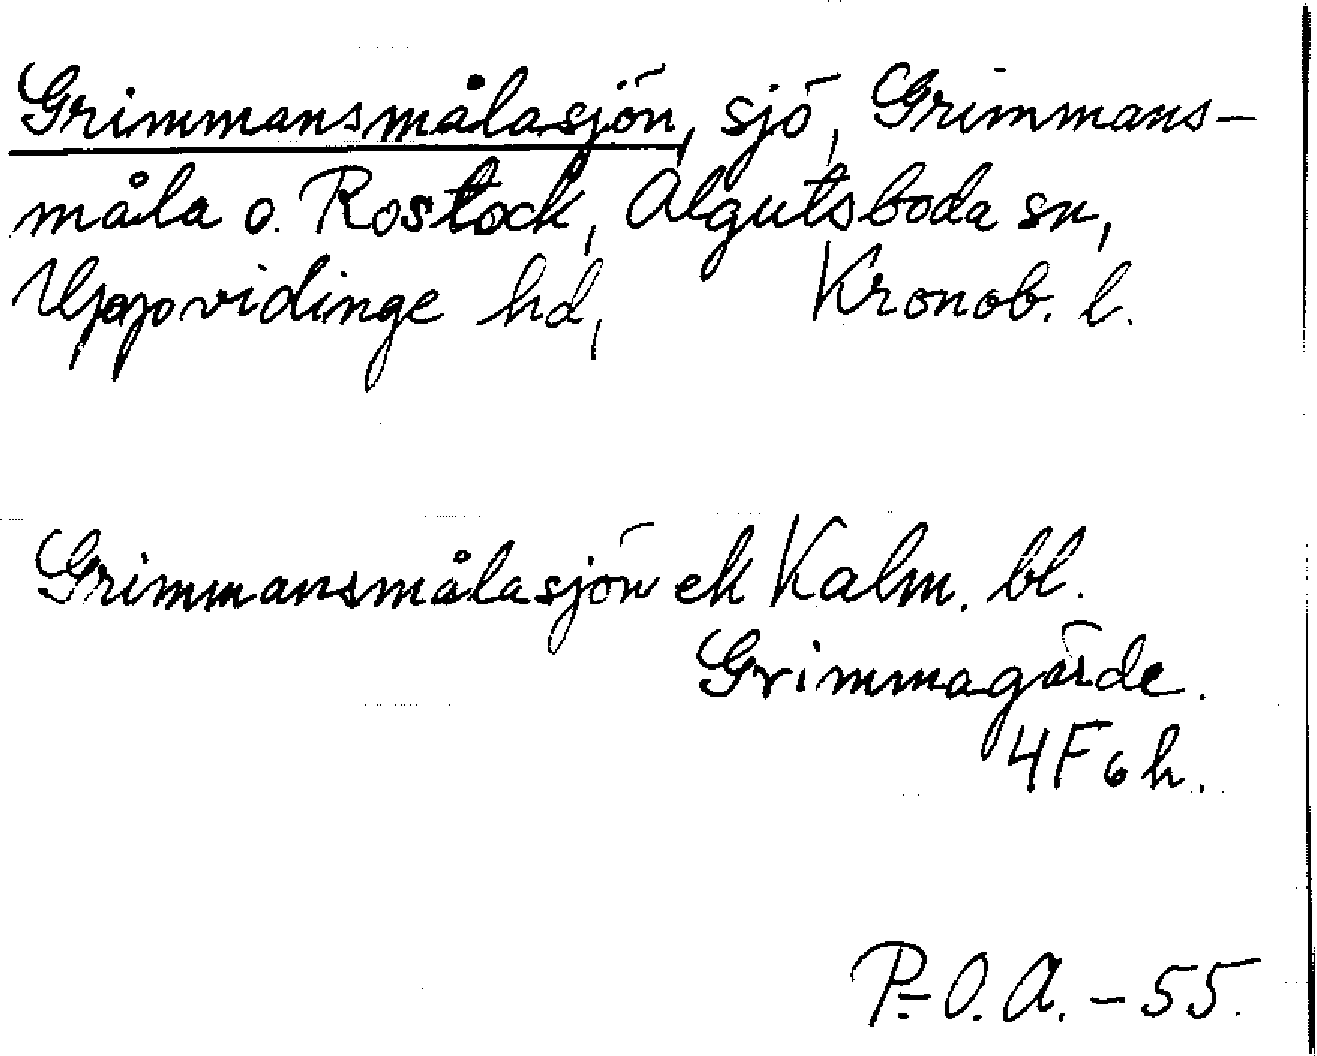 Grimmansmålasjön, sjö, Grimmans-
måla o. Rostock, Algutsboda sn,
Uppvidinge hd, Kronob. l.
Grimmansmålasjön ek Kalm. bl.
Grimmagärde.
4F6h.
P.-O.A. - 55.